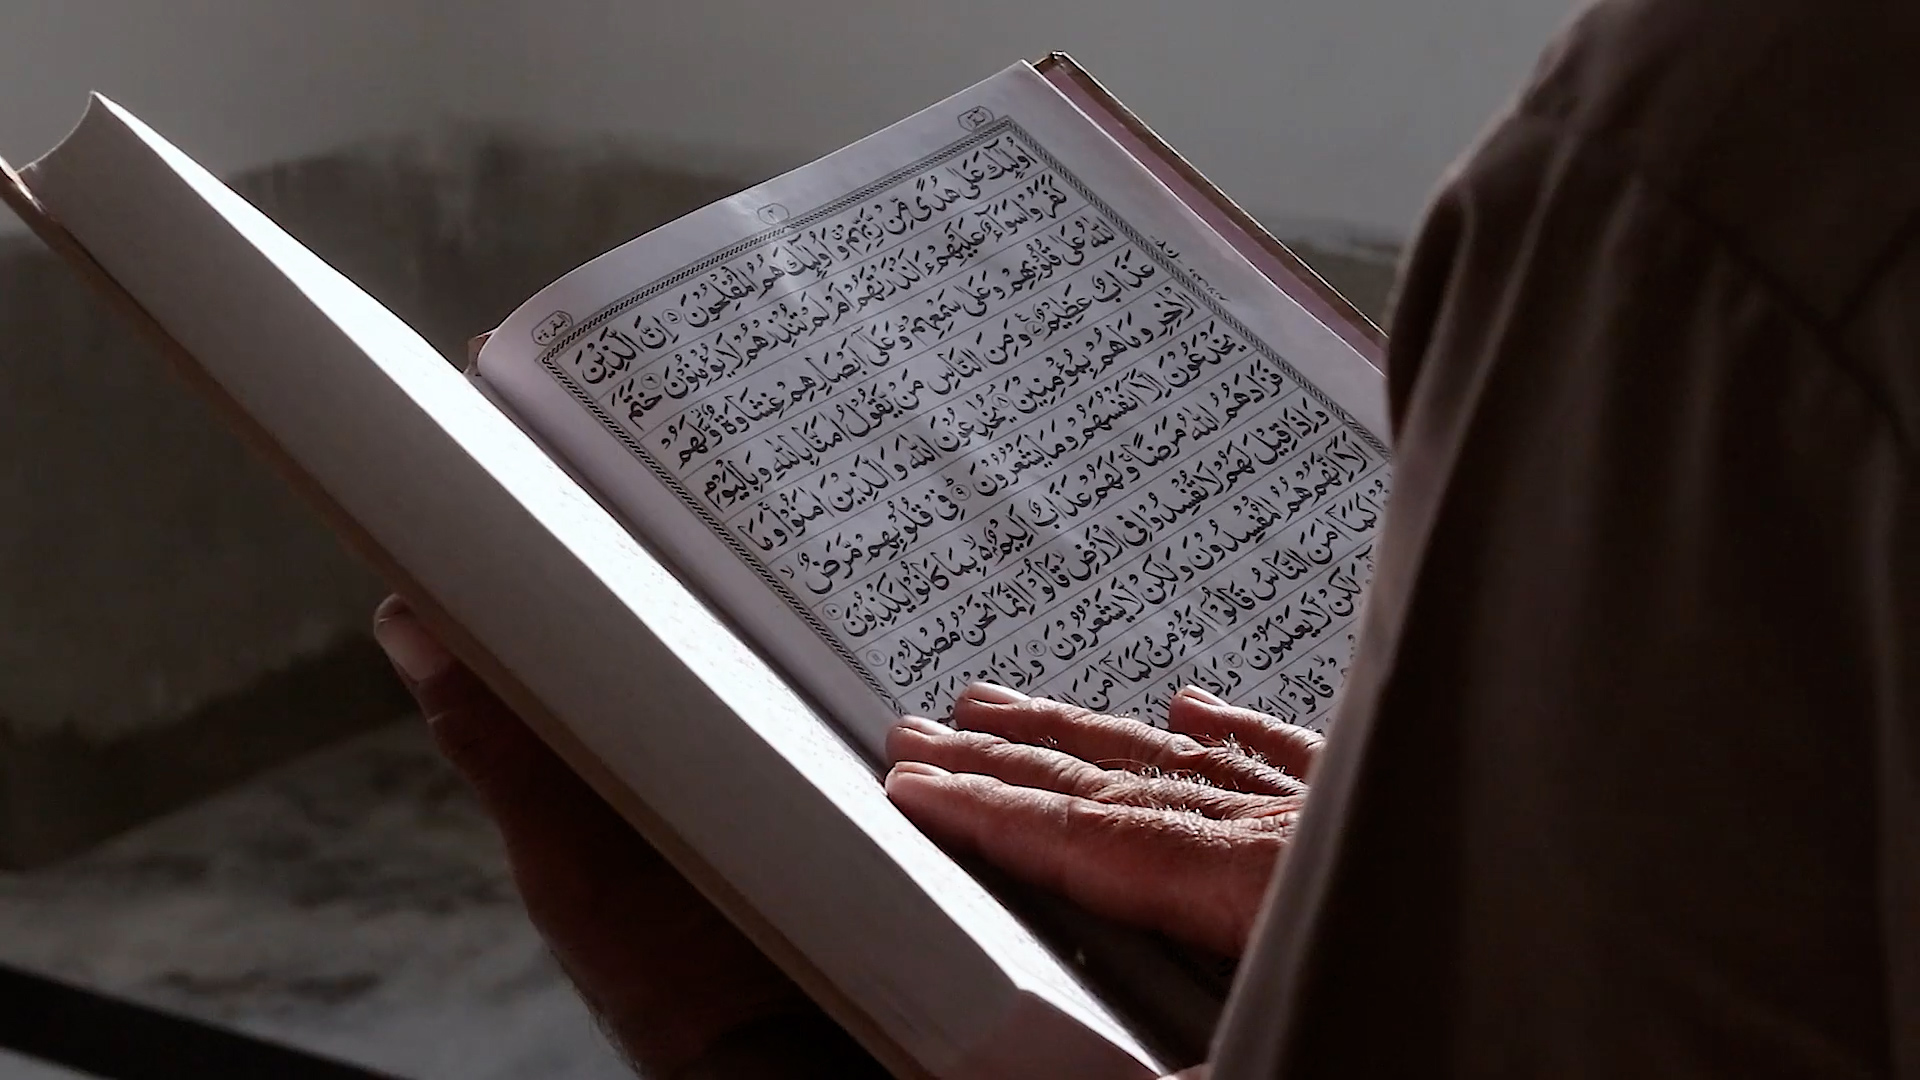 البقرة ٢
٣
اُولٰٓئِكَ عَلٰى هُدًى مِّنْ رَّبِّهِمْ وَاُولٰٓئِكَ هُمُ الْمُفْلِحُوْنَ ٥ اِنَّ الَّذِيْنَ
كَفَرُوْا سَوَآءٌ عَلَيْهِمْ ءَاَنْذَرْتَهُمْ اَمْ لَمْ تُنْذِرْهُمْ لَا يُؤْمِنُوْنَ ٦ خَتَمَ
اللّٰهُ عَلٰى قُلُوْبِهِمْ وَعَلٰى سَمْعِهِمْ وَعَلٰٓى اَبْصَارِهِمْ غِشَاوَةٌ وَّلَهُمْ
عَذَابٌ عَظِيْمٌ ٧ وَمِنَ النَّاسِ مَنْ يَّقُوْلُ اٰمَنَّا بِاللّٰهِ وَبِالْيَوْمِ
الْاٰخِرِ وَمَا هُمْ بِمُؤْمِنِيْنَ ٨ يُخٰدِعُوْنَ اللّٰهَ وَالَّذِيْنَ اٰمَنُوْا وَمَا
يَخْدَعُوْنَ اِلَّآ اَنْفُسَهُمْ وَمَا يَشْعُرُوْنَ ٩ فِيْ قُلُوْبِهِمْ مَّرَضٌ
فَزَادَهُمُ اللّٰهُ مَرَضًا وَلَهُمْ عَذَابٌ اَلِيْمٌ بِمَا كَانُوْا يَكْذِبُوْنَ ١٠
وَاِذَا قِيْلَ لَهُمْ لَا تُفْسِدُوْا فِي الْاَرْضِ قَالُوْٓا اِنَّمَا نَحْنُ مُصْلِحُوْنَ ١١
اَلَآ اِنَّهُمْ هُمُ الْمُفْسِدُوْنَ وَلٰكِنْ لَّا يَشْعُرُوْنَ ١٢ وَاِذَا
كَمَآ اٰمَنَ النَّاسُ قَالُوْٓا اَنُؤْمِنُ كَمَآ اٰمَنَ
لٰكِنْ لَّا يَعْلَمُوْنَ ١٣ وَاِذَا
قَالُوْٓا